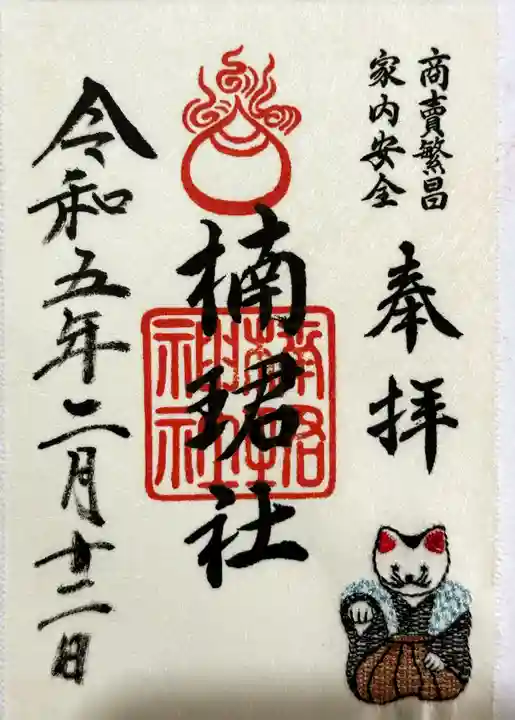 商賣繁昌
家内安全
奉拝
楠珺社
令和五年二月十二日